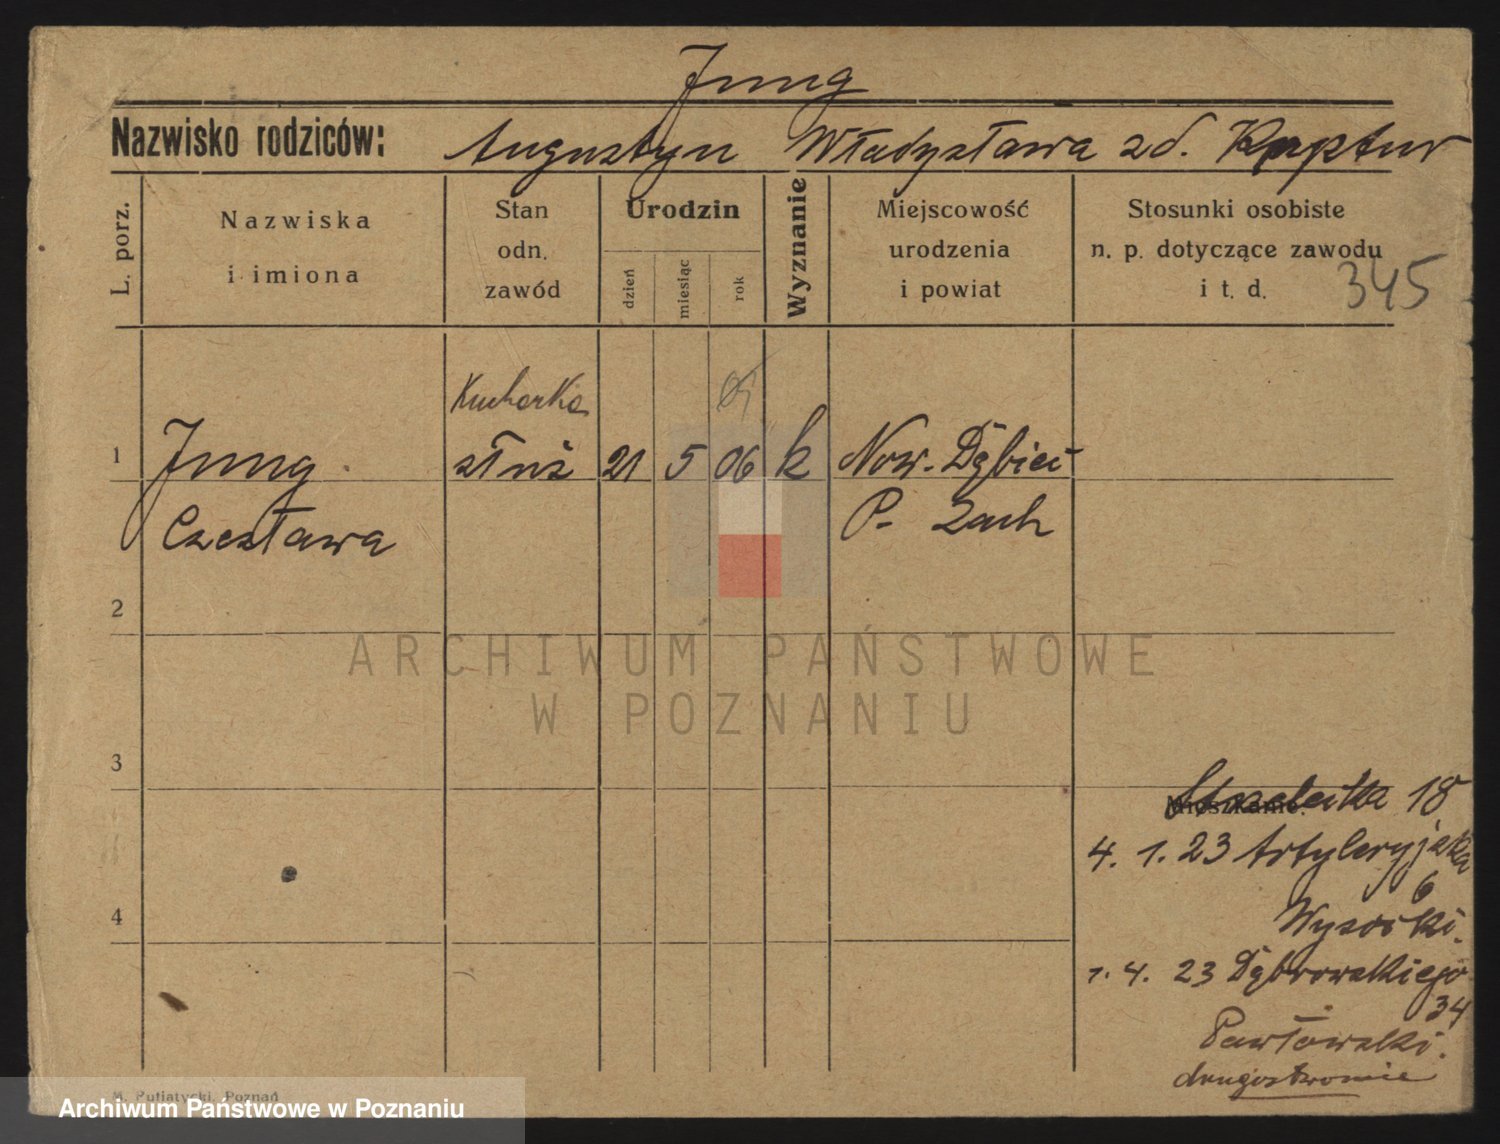 Jung
Nazwisko rodziców: Augustyn Władysława zd. Kaptur
L. porz.
Nazwiska i imiona
Stan odn. zawód
Urodzin
dzień
miesiąc
rok
Wyznanie
Miejscowość urodzenia i powiat
Stosunki osobiste n. p. dotyczące zawodu i t. d.
345
Kucharka
1 Jung służ 21 5 06 k Now. Dębiec
Czesława P. Zach
2
3
4
Mieszkanie:
Strzelecka 18
4. 1. 23 Artyleryjska 6
Wysocki.
1. 4. 23 Dąbrowskiego 34
Pawłowski.
drugostronnie
M. Putiatycki, Poznań
ARCHIWUM PAŃSTWOWE
W POZNANIU
Archiwum Państwowe w Poznaniu